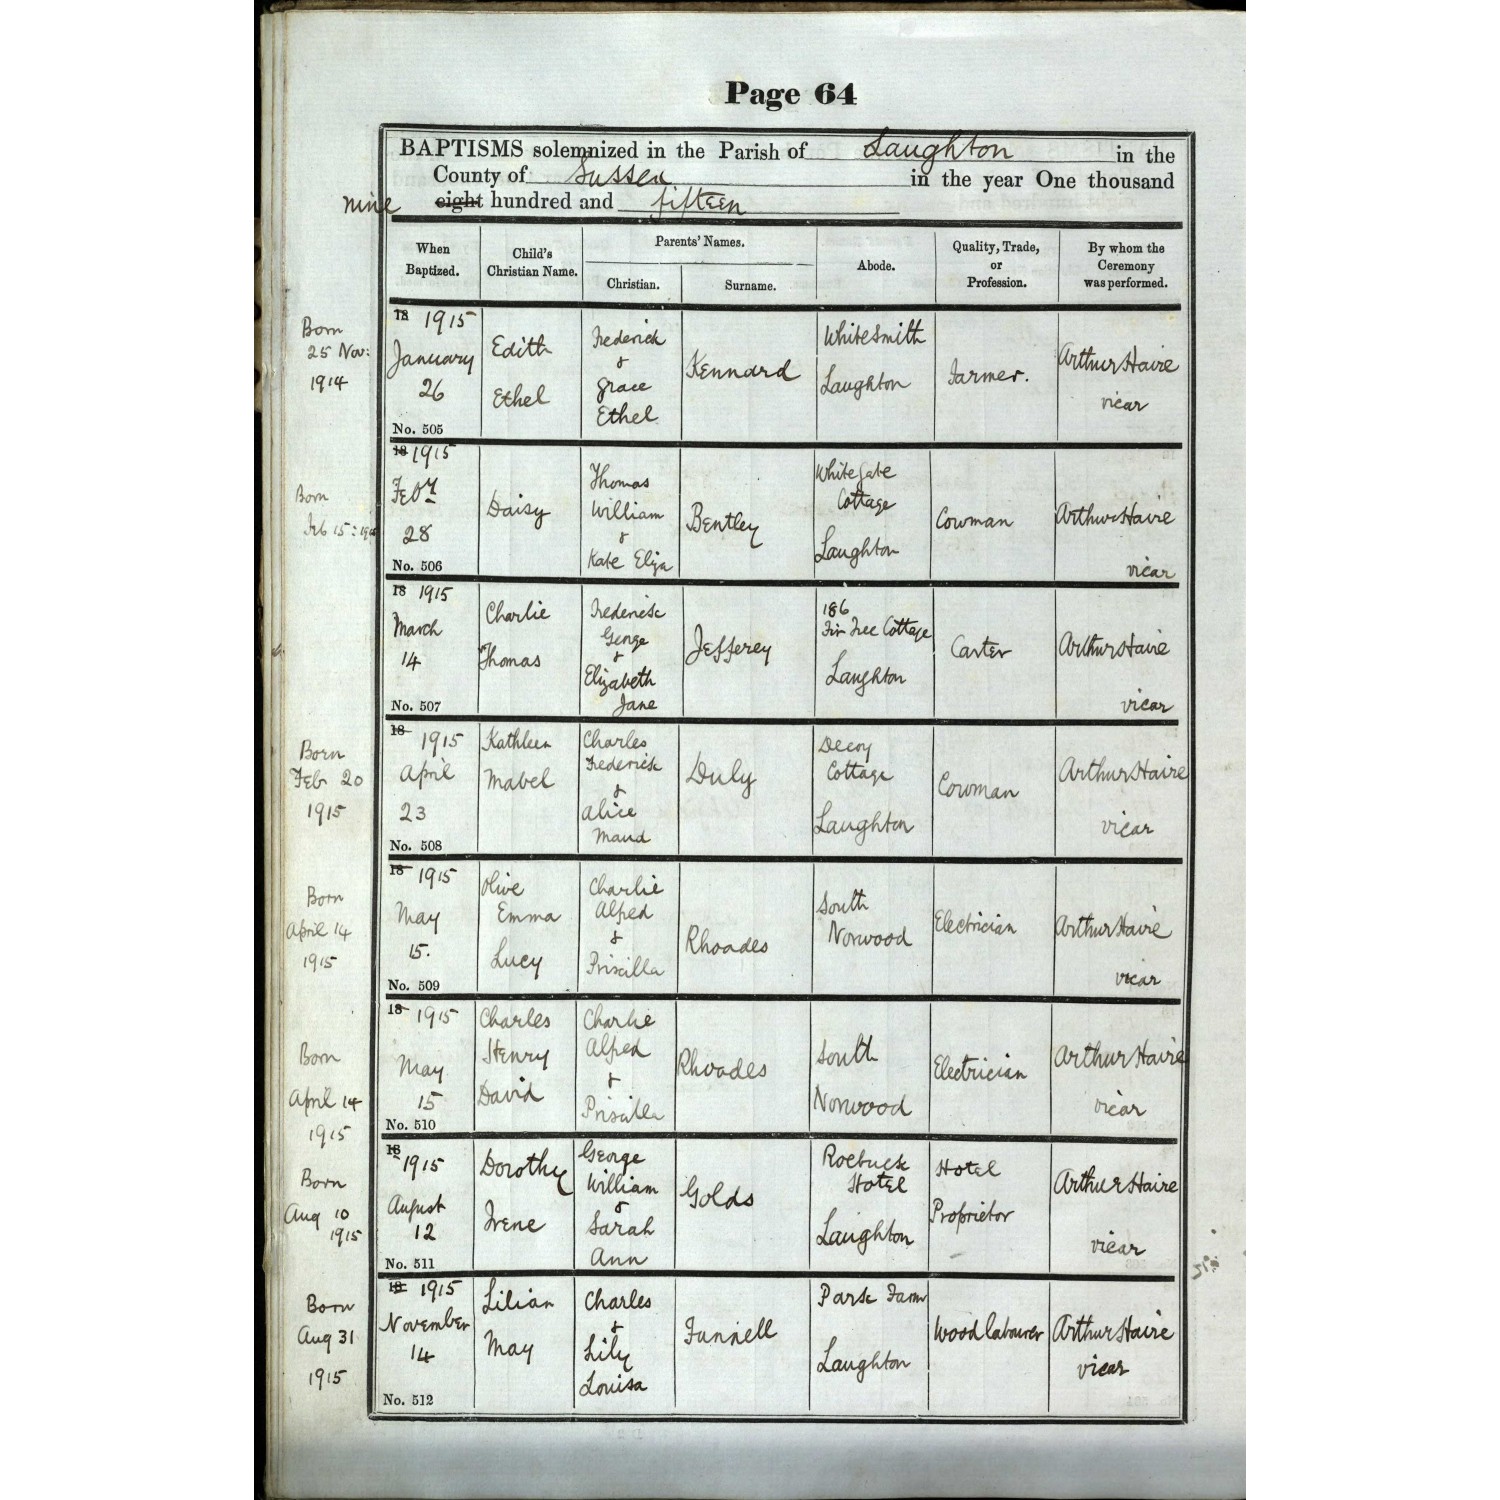 Page 64
BAPTISMS solemnized in the Parish of Laughton in the
County of Sussex in the year One thousand
nine eight hundred and fifteen
When Baptized.
Child's Christian Name.
Parents' Names.
Christian.
Surname.
Abode.
Quality, Trade, or Profession.
By whom the Ceremony was performed.
Born
25 Nov:
1914
18 1915
January
26
No. 505
Edith
Ethel
Frederick
&
Grace
Ethel
Kennard
Whitesmith
Laughton
Farmer.
Arthur Haire
vicar
Born
Feb 15: 1915
18 1915
Feby
28
No. 506
Daisy
Thomas
William
&
Kate Eliza
Bentley
White Gate
Cottage
Laughton
Cowman
Arthur Haire
vicar
18 1915
March
14
No. 507
Charlie
Thomas
Frederick
George
&
Elizabeth
Jane
Jefferey
186
Fir Tree Cottage
Laughton
Carter
Arthur Haire
vicar
Born
Feb 20
1915
18 1915
April
23
No. 508
Kathleen
Mabel
Charles
Frederick
&
Alice
Maud
Duly
Decoy
Cottage
Laughton
Cowman
Arthur Haire
vicar
Born
April 14
1915
18 1915
May
15.
No. 509
Olive
Emma
Lucy
Charlie
Alfred
&
Priscilla
Rhoades
South
Norwood
Electrician
Arthur Haire
vicar
Born
April 14
1915
18 1915
May
15
No. 510
Charles
Henry
David
Charlie
Alfred
&
Priscilla
Rhoades
South
Norwood
Electrician
Arthur Haire
vicar
Born
Aug 10
1915
18 1915
August
12
No. 511
Dorothy
Irene
George
William
&
Sarah
Ann
Golds
Roebuck
Hotel
Laughton
Hotel
Proprietor
Arthur Haire
vicar
Born
Aug 31
1915
18 1915
November
14
No. 512
Lilian
May
Charles
&
Lily
Louisa
Funnell
Park Farm
Laughton
Wood labourer
Arthur Haire
vicar